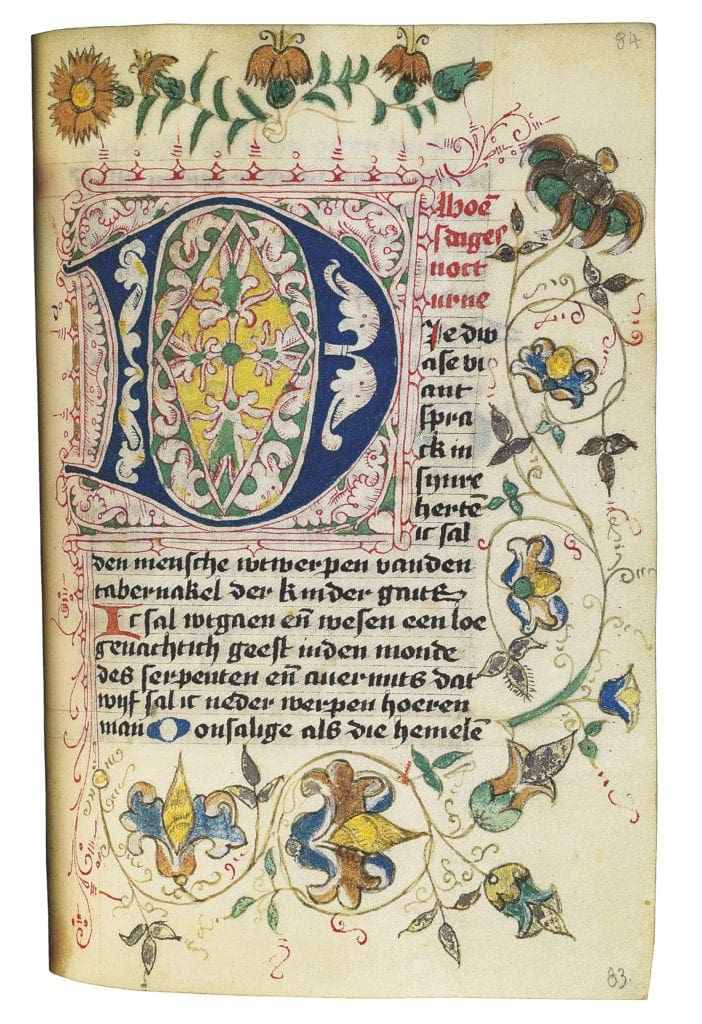 84
D
Woē
sdages
noct
urne
Ie dw
ase vi
ant
spra
ck in
synre
hertē
ic sal
den mensche wtwerpen vanden
tabernakel der kinder gaits
Ic sal wtgaen eñ wesen een loe
genachtich geest inden monde
des serpenten eñ auermits dat
wijf sal ic neder werpen hoeren
man O onsalige als die hemelē
83.